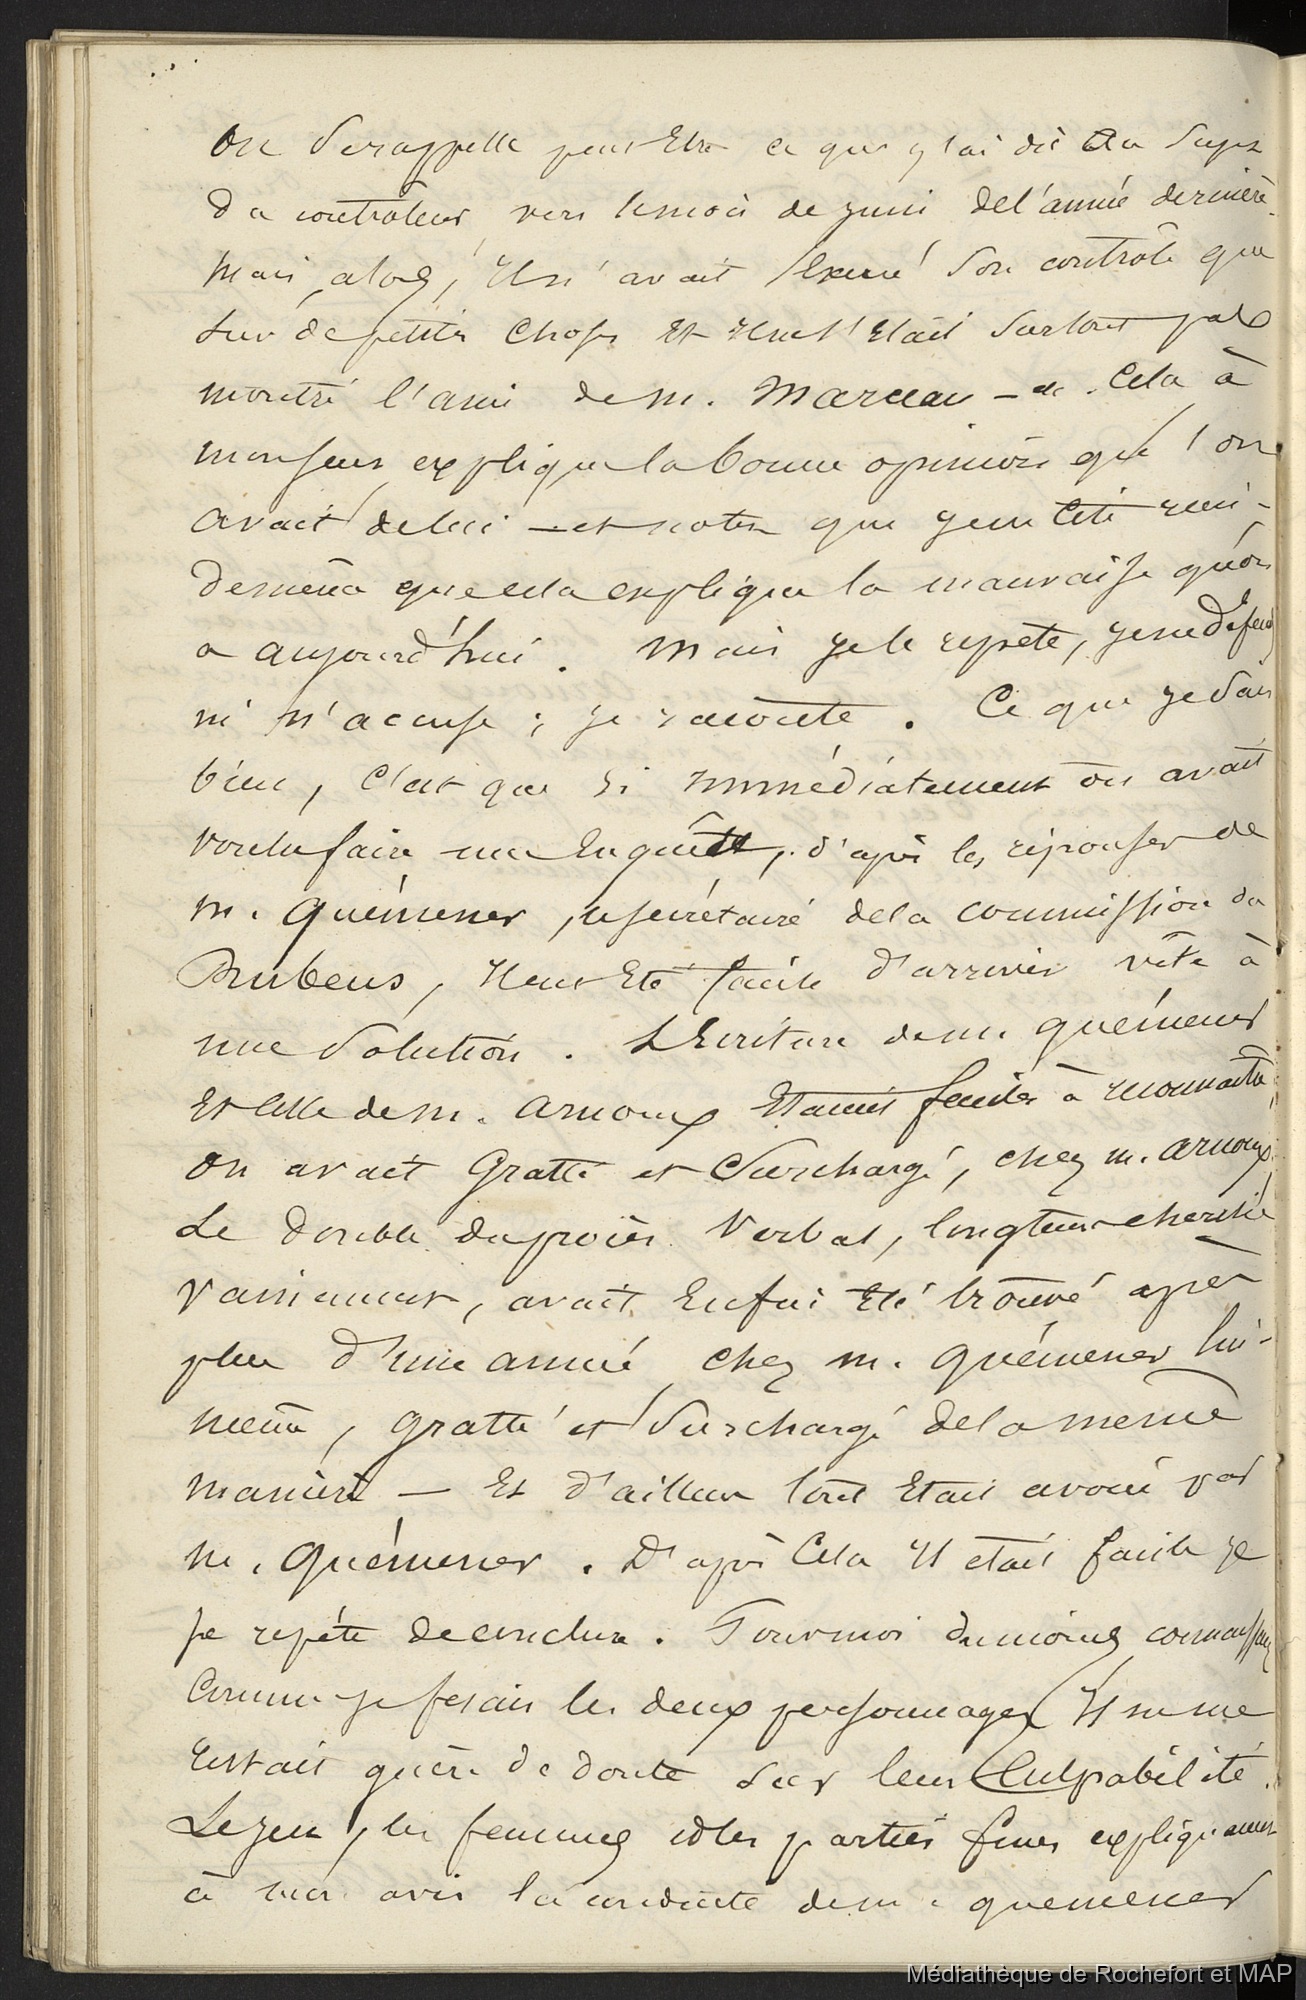 On se rappelle peut être ce que j'ai dit au sujet
du controleur vers le mois de juin de l'année dernière.
Mais alors, il n'avait exercé son controle que
sur de petites choses et il ne s'était surtout pas
montré l'ami de m. Marceau - Cela à
mon sens explique la bonne opinion que l'on
avait de lui - et notez que je me tiens
de même que cela explique la mauvaise qu'on
a aujourd'hui. Mais je le repete, je ne defends
ni n'accuse ; je raconte. Ce que je sais
bien, c'est que si immédiatement on avait
voulu faire une enquête, d'après les réponses de
m. Quémener, secrétaire de la commission du
Rubens, il eut été facile d'arriver vite à
une solution. L'écriture de m. quémener
et celle de m. arnoux étaient faciles à reconnaitre,
on avait gratté et surchargé, chez m. arnoux.
Le double du procès verbal, longtems cherché
vainement, avait enfin été trouvé après
plus d'une année chez m. quémener lui-
meme, gratté et surchargé de la meme
manière — et d'ailleurs tout etait avoué par
m. Quémener. D'après cela il etait facile je
le repéte de conclure. Pour moi du moins connaissant
comme je fesais les deux personnages il ne me
restait guère de doute sur leur culpabilité.
Le jeu, les femmes et les parties fines expliquaient
à mon avis la conduite de m. quemener
Médiathèque de Rochefort et MAP